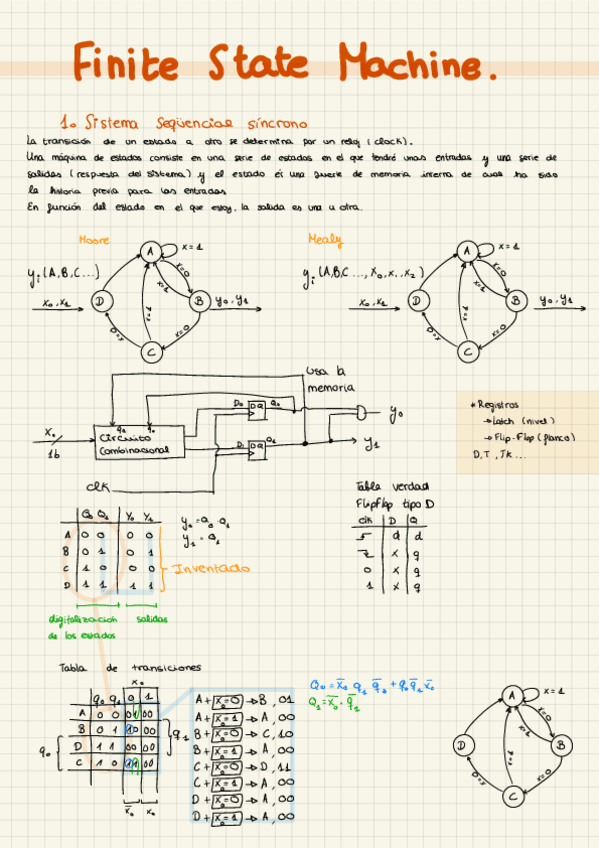 Finite State Machine.
1. Sistema Seqüencial síncrono
La transición de un estado a otro se determina por un reloj (clock).
Una máquina de estados consiste en una serie de estados en el que tendré unas entradas y una serie de
salidas (respuesta del sistema) y el estado es una suerte de memoria interna de cual ha sido
la historia previa para las entradas
En función del estado en el que estoy, la salida es una u otra.
Moore
Mealy
yi (A,B,C...)
yi (A,B,C..., x0, x1, x2)
x0, x1
y0, y1
x0, x1
y0, y1
A x=1
x=0
x=1
x=1
D
B
x=0
x=0
C
A x=1
x=0
x=1
x=1
D
B
x=0
x=0
C
usa la
memoria
x0
1b
q1 q0
Circuito
Combinacional
D0 DQ Q0
D1 DQ Q1
y0
y1
clk
* Registros
→ Latch (nivel)
→ Flip-Flop (flanco)
D, T, JK...
Q0 Q1 Y0 Y1
A 0 0 0 0
B 0 1 0 1
C 1 0 0 0
D 1 1 1 1
y0 = Q0 Q1
y1 = Q1
Inventado
digitalización
de los estados
salidas
Tabla verdad
FlipFlop tipo D
clk D Q
d d
x q
0 x q
1 x q
Tabla de transiciones
x0
q0 q1 0 1
A 0 0 01 00
B 0 1 10 00
D 1 1 00 00
C 1 0 11 00
q0
q1
x̄0 x0
A + x0=0 → B, 01
A + x0=1 → A, 00
B + x0=0 → C, 10
B + x0=1 → A, 00
C + x0=0 → D, 11
C + x0=1 → A, 00
D + x0=0 → A, 00
D + x0=1 → A, 00
Q1 = x̄0 · q̄1
A x=1
x=0
x=1
x=1
D
B
x=0
x=0
C